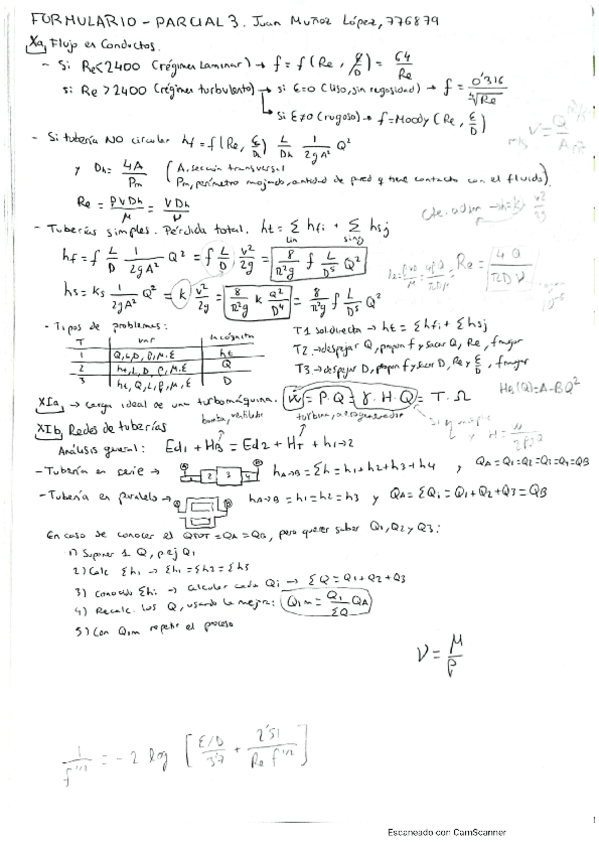 FORMULARIO - PARCIAL 3. Juan Muñoz López, 776879
Xa, Flujo en Conductos.
- Si Re<2400 (régimen laminar) → f = f(Re, ε/D) = 64/Re
si Re > 2400 (régimen turbulento) → si ε=0 (liso, sin rugosidad) → f = 0'316/⁴√Re
→ si ε≠0 (rugoso) → f = Moody (Re, ε/D)
V = Q/A
- Si tubería NO circular hf = f(Re, ε/Dh) L/Dh 1/2gA² Q²
y Dh = 4A/Pm (A, sección transversal
Pm, perímetro mojado, cantidad de pared q tiene contacto con el fluido).
Re = ρVDh/μ = VDh/ν
- Tuberías simples. Pérdida total. ht = Σ hfi + Σ hsj
lin sing
hf = f L/D 1/2gA² Q² = f L/D v²/2g = 8/π²g f L/D⁵ Q²
Re = 4Q/πDν
hs = ks 1/2gA² Q² = k v²/2g = 8/π²g k Q²/D⁴ = 8/π²g f L/D⁵ Q²
- Tipos de problemas:
T var incógnita
1 Q, L, D, ρ, μ, ε ht
2 ht, L, D, ρ, μ, ε Q
3 ht, Q, L, ρ, μ, ε D
T1 sol directa → ht = Σhfi + Σhsj
T2 → despejar Q, propon f y sacar Q, Re, f nuevo
T3 → despejar D, propon f y sacar D, Re y ε/D, f nuevo
HB(Q)=A-BQ²
XIa, → carga ideal de una turbomáquina. Ẇ = P·Q = γ·H·Q = T·Ω
XIb, Redes de tuberías
bomba, ventilador turbina, aerogenerador
Análisis general: Ed1 + HB = Ed2 + HT + h1→2
- Tubería en serie → 2 3 4 hA→B = Σh = h1+h2+h3+h4, QA=Q1=Q2=Q3=Q4=QB
- Tubería en paralelo → hA→B = h1=h2=h3 y QA=ΣQi = Q1+Q2+Q3=QB
En caso de conocer el QTOT=QA=QB, pero querer saber Q1, Q2 y Q3:
1) Suponer 1 Q, p.ej Q1
2) Calc Σh1 → Σh1=Σh2=Σh3
3) Conocido Σhi → calcular cada Qi → ΣQ = Q1+Q2+Q3
4) Recalc. los Q, usando la mejira: Q1m = Q1/ΣQ QA
5) Con Q1m repetir el proceso
ν = μ/ρ
1/f^1/2 = -2 log [ε/D/3'7 + 2'51/Re f^1/2]
Escaneado con CamScanner